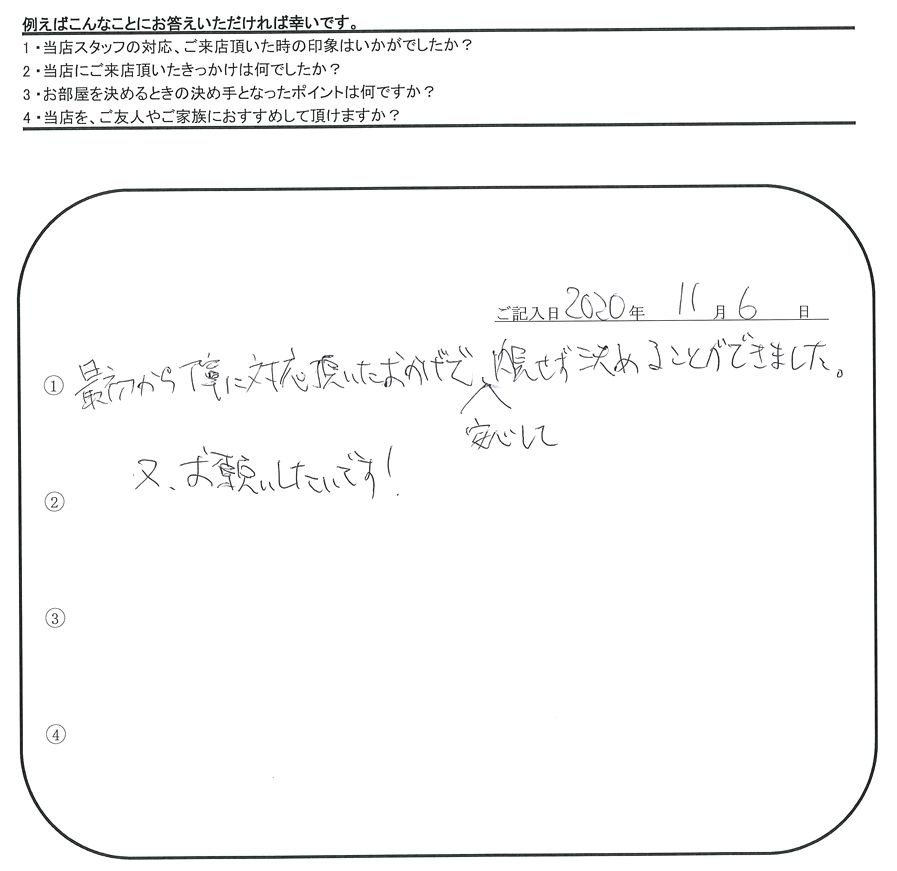 例えばこんなことにお答えいただければ幸いです。
1・当店スタッフの対応、ご来店頂いた時の印象はいかがでしたか？
2・当店にご来店頂いたきっかけは何でしたか？
3・お部屋を決めるときの決め手となったポイントは何ですか？
4・当店を、ご友人やご家族におすすめして頂けますか？
ご記入日 2020 年 11 月 6 日
① 最初から丁寧に対応頂いたおかげで、せず決めることができました。
安心して
又、お願いしたいです！
②
③
④